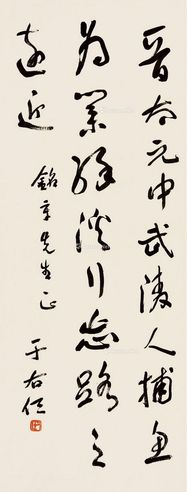 晋太元中武陵人捕魚
為業緣溪行忘路之
遠近
銘章先生正
于右任